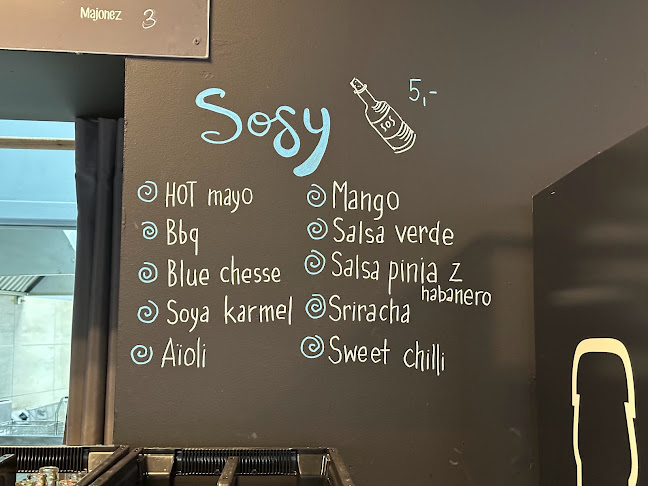 Majonez 3
Sosy 5,-
HOT mayo
Bbq
Blue chesse
Soya karmel
Aïoli
Mango
Salsa verde
Salsa pinia z
habanero
Sriracha
Sweet chilli